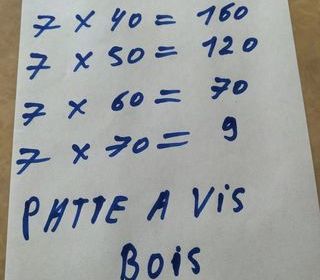 7 x 40 = 160
7 x 50 = 120
7 x 60 = 70
7 x 70 = 9
PATTE A VIS
BOIS